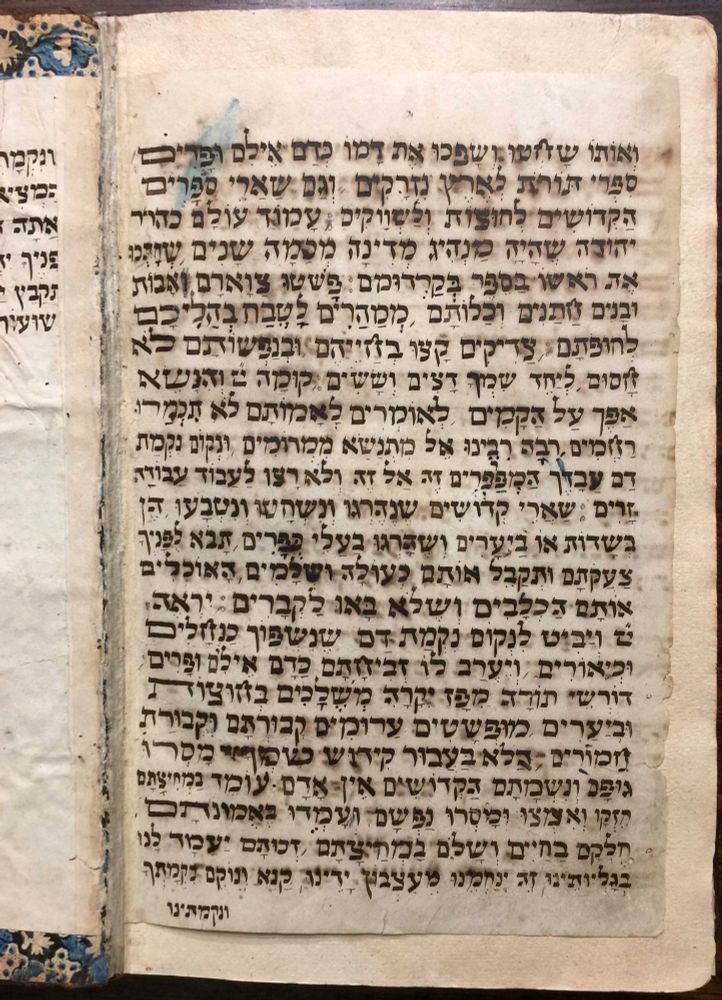 ואותו שחטו ושפכו את דמו כדם אילם ופרים
ספרי תורת לארץ נזרקים וגם שארי ספרים
הקדושים לחוצות ולשווקים עמוד עולם כהר״ר
יהודה שהיה מנהיג מדינה מכמה שנים
את ראשו בספר בקרדומם פשטו צוארם ואבות
ובנים חתנים וכלותם ממהרים לטבח בהליכם
לחופתם צדיקים קצו בחייהם ובנפשותם לא
חסום ליחד שמך רצים וששים קומה יי והנשא
אפך על הקמים לאומרים לאמותם לא תכמרו
רחמים רבה ריבינו אל מתנשא ממרומים ונקום נקמת
דם עבדך זה אל זה ולא רצו לעבוד עבודה
זרים שארי קדושים שנהרגו ונשחטו ונטבעו הן
בשדות או ביערים ושהרגו בעלי כפרים תבא לפניך
צעקתם ותקבל אותם כעולה ושלמים האוכלים
אותם הכלבים ושלא באו לקברים יראה
יי ויביט לנקום נקמת דם שנשפוך כנחלים
וכיאורים ויערב לו זביחתם כדם אילם ופרים
דורשי תורה מפז יקרה משלכים בחוצות
וביערים מופשטים ערומים קבורתם וקבורת
חמורים הלא בעבור קידוש שמך מסרו
גופם ונשמתם הקדושים אין אדם עומד במחיצתם
חזקו ואמצו ומסרו נפשם ועמדו באמונתם
חלקם בחיים ושלם במחיצתם זכותם יעמד לנו
בגליותינו זה ינחמנו מעצבון ידינו קנא ונוקם נקמתך
ונקמתינו
ונקמת
המציא
אתה
פניך
נקבץ